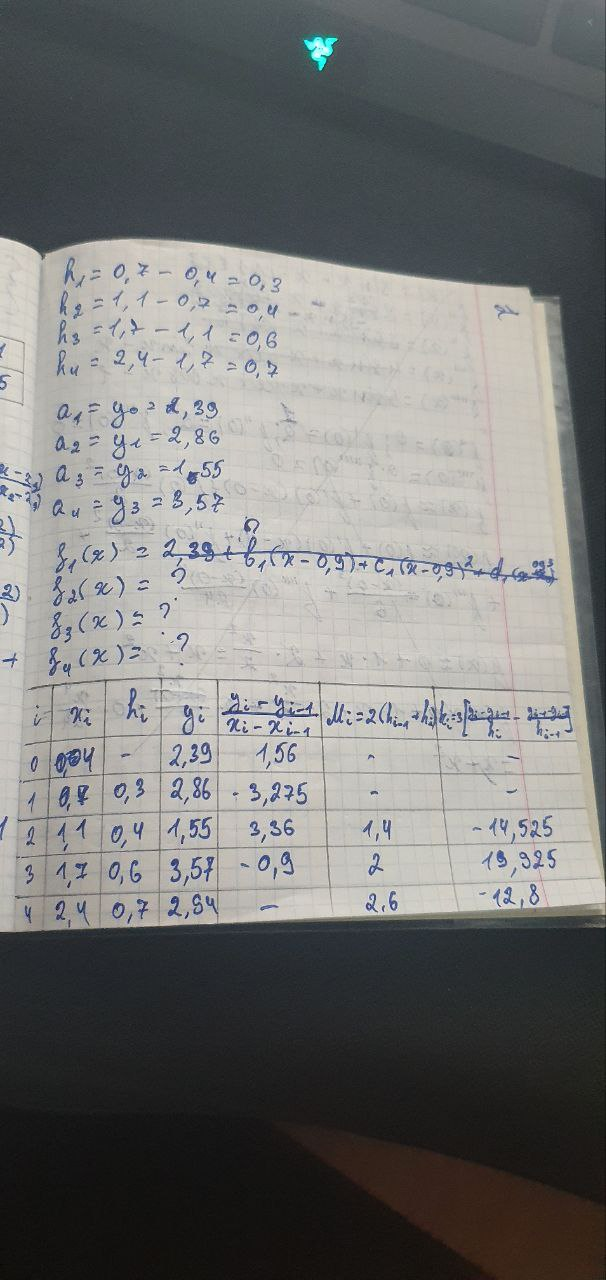 h₁ = 0,7 - 0,4 = 0,3
h₂ = 1,1 - 0,7 = 0,4
h₃ = 1,7 - 1,1 = 0,6
h₄ = 2,4 - 1,7 = 0,7
a₁ = y₀ = 2,39
a₂ = y₁ = 2,86
a₃ = y₂ = 1,55
a₄ = y₃ = 3,57
f₁(x) = 2,39 + b₁(x-0,9) + c₁(x-0,9)² + d₁
f₂(x) = ?
f₃(x) = ?
f₄(x) = ?
i xᵢ hᵢ yᵢ (yᵢ - yᵢ₋₁)/(xᵢ - xᵢ₋₁) Mᵢ = 2(hᵢ₋₁ + hᵢ) kᵢ = 3[]
0 0,4 - 2,39 1,56 - -
1 0,7 0,3 2,86 -3,275 - -
2 1,1 0,4 1,55 3,36 1,4 -14,525
3 1,7 0,6 3,57 -0,9 2 19,925
4 2,4 0,7 2,94 - 2,6 -12,8